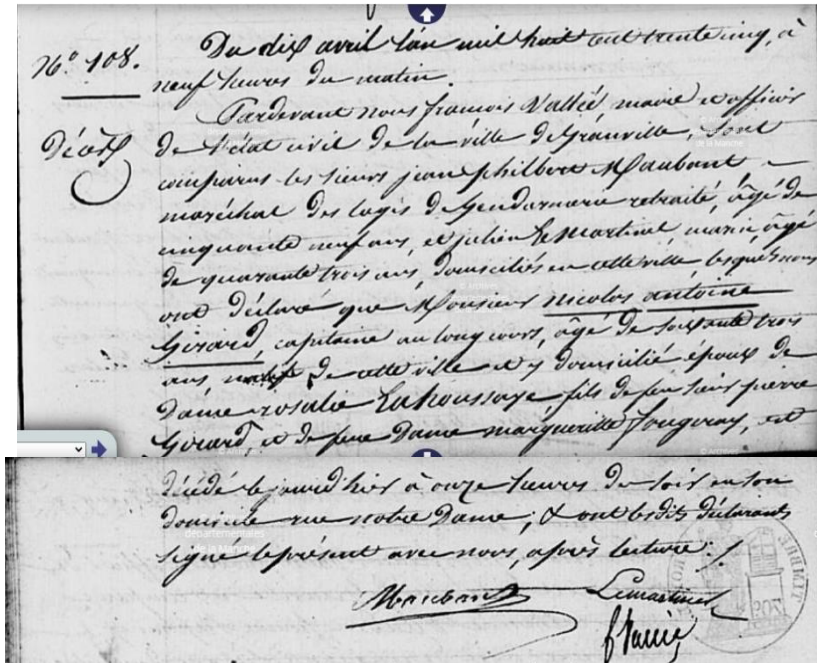 N° 108.
Décès
Du dix avril l'an mil huit cent trente cinq, à
neuf heures du matin.
Pardevant nous françois Vallée maire et officier
de l'état civil de la ville de Granville, sont
comparus les sieurs jean philbert Maubant
maréchal des logis de Gendarmerie retraité, âgé de
cinquante neuf ans, et julien Lemartinel marin, âgé
de quarante trois ans, domiciliés en cette ville lesquels nous
ont déclaré que Monsieur nicolas antoine
Girard, capitaine au long cours, âgé de soixante trois
ans natif de cette ville et y domicilié époux de
Dame rosalie Lahoussaye fils de feu sieur pierre
Girard, et de feue Dame margueritte fougeray, est
décédé le jourd'hier à onze heures du soir en son
domicile rue notre Dame; & ont lesdits déclarants
signé le présent avec nous, après lecture ./.
Maubant Lemartinel
f Vallée